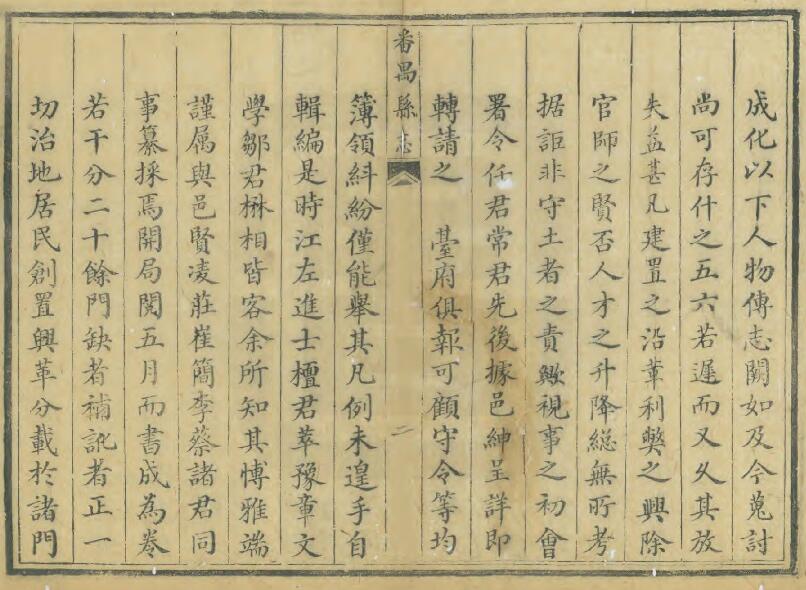 成化以下人物傳志闕如及今蒐討
尚可存什之五六若遲而又久其放
失益甚凡建置之沿革利獘之興除
官師之賢否人才之升降総無所考
据詎非守土者之責歟視事之初會
署令任君常君先後據邑紳呈詳即
轉請之　臺府俱報可顧守令等均
番禺縣志
二
簿領糾紛僅能舉其凡例未遑手自
輯編是時江左進士檀君萃豫章文
學鄒君楙相皆客余所知其博雅端
謹属與邑賢凌莊崔簡李蔡諸君同
事纂採焉開局閱五月而書成為卷
若干分二十餘門缺者補訛者正一
切治地居民創置興革分載於諸門